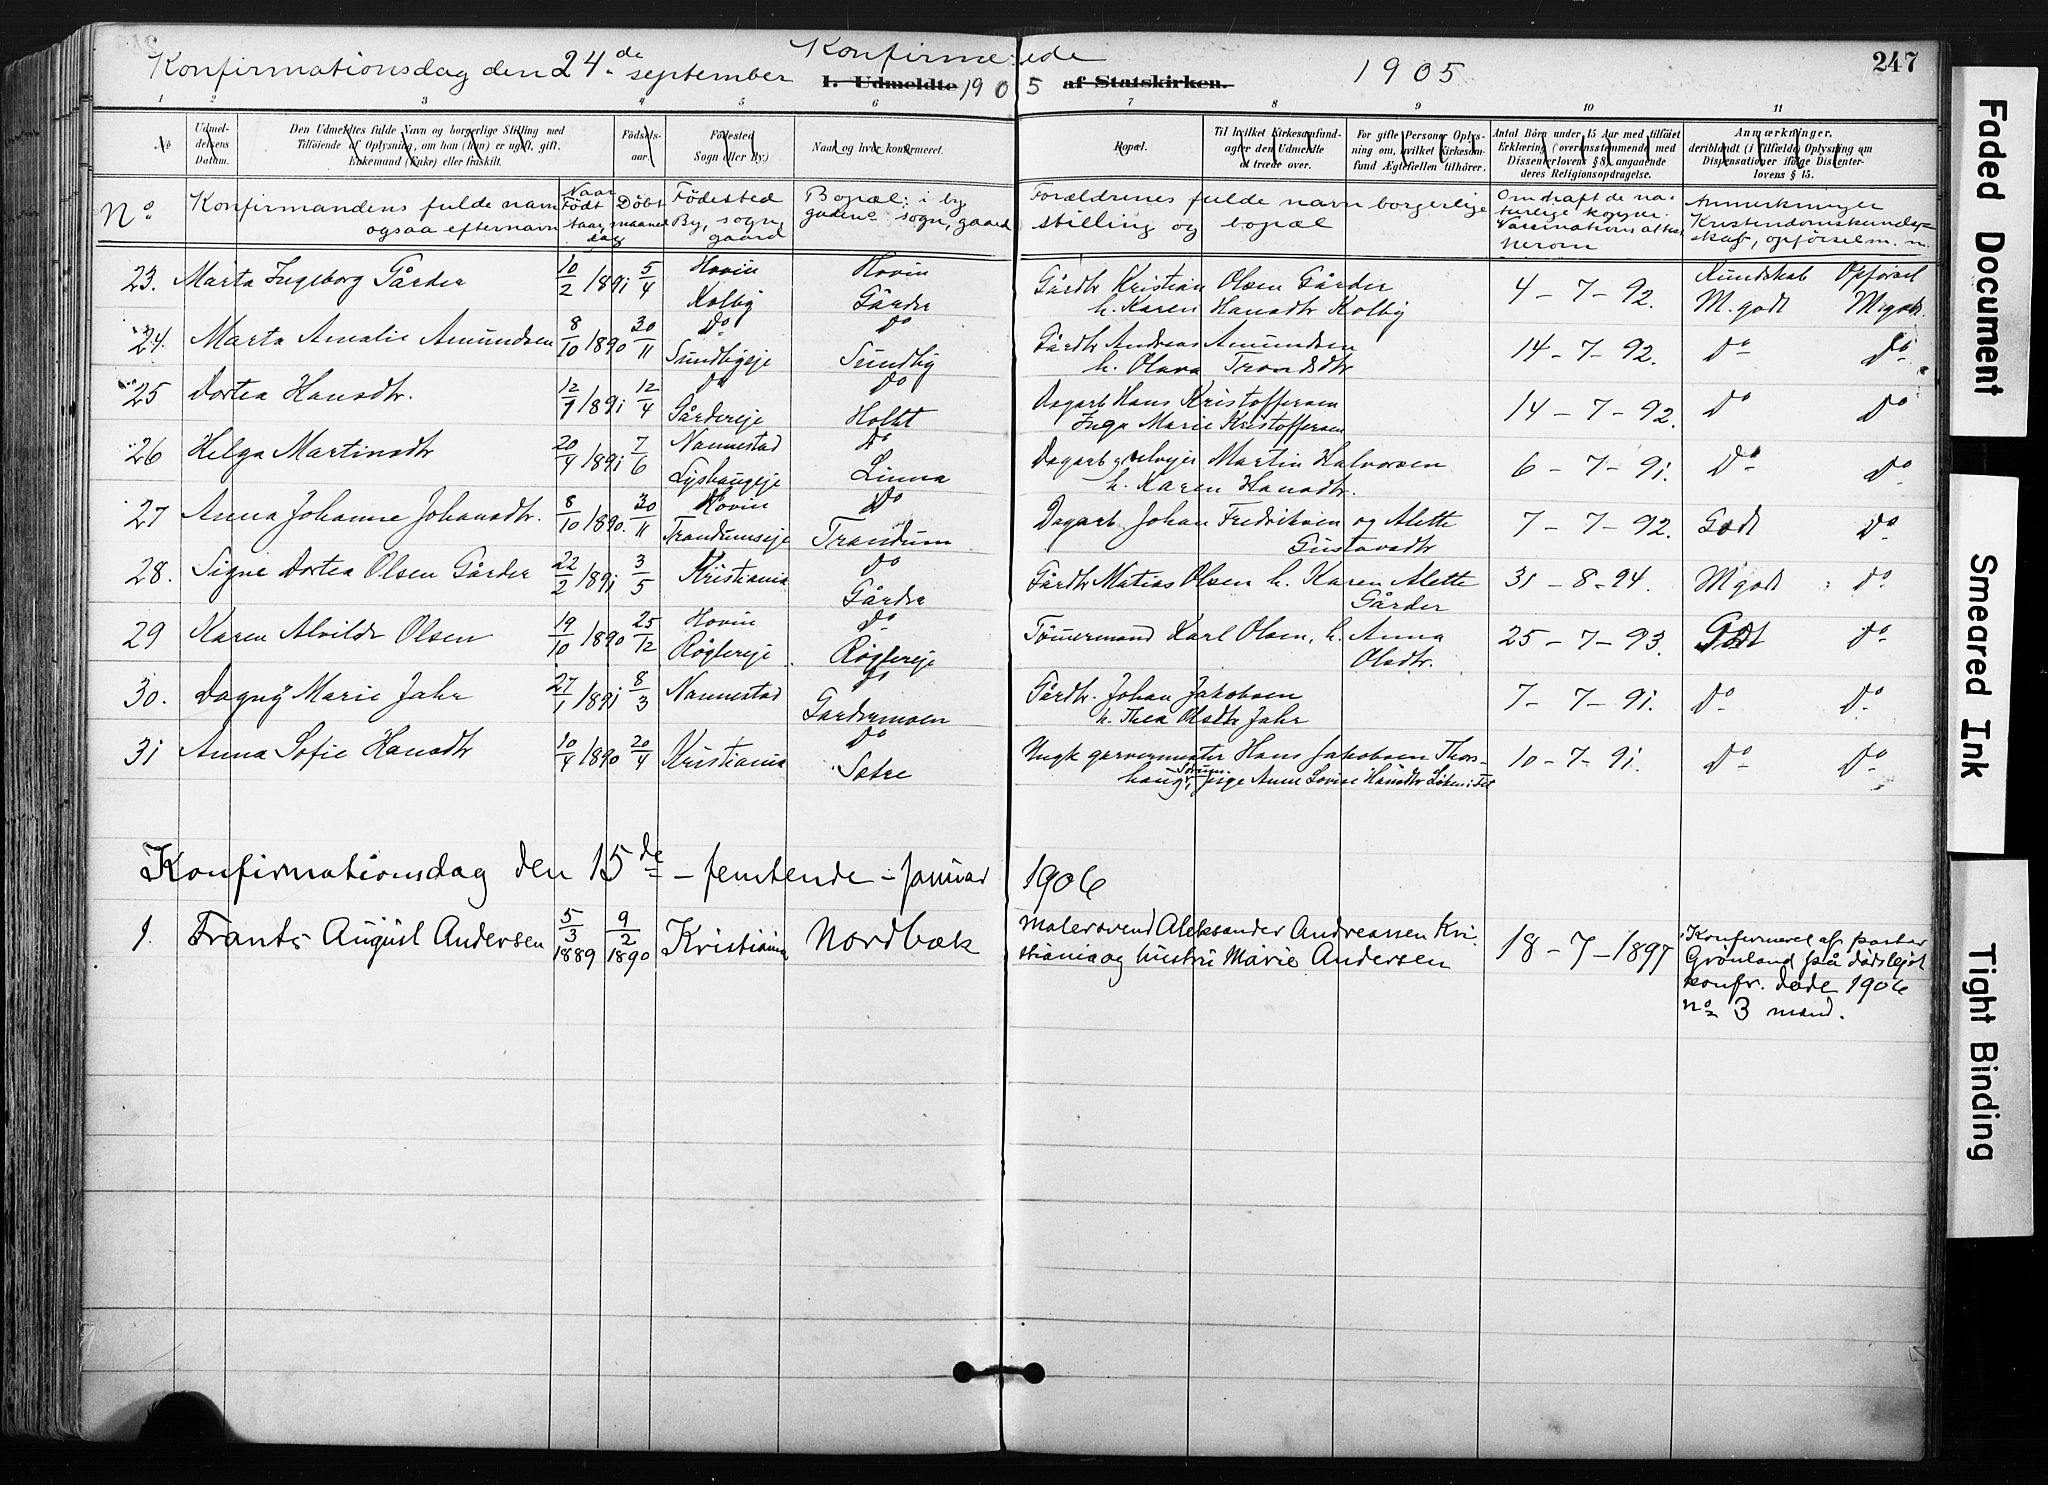 247
Konfirmationsdag den 24de september Konfirmerede 1905
1. Udmeldte 1905 af Statskirken.
1 2 3 4 5 6 7 8 9 10 11
No
Udmeldelsens Datum.
Den Udmeldtes fulde Navn og borgerlige Stilling med
Tilføiende af Oplysning, om han (hun) er ugift, gift,
Enkemand (Enke) eller fraskilt.
Fødselsaar.
Fødested
Sogn eller By.)
Naar og hvor konfirmeret.
Bopæl.
Til hvilket Kirkesamfund
agter den Udmeldte
at træde over.
For gifte Personer Oplysning
om, hvilket Kirkesamfund
Ægtefællen tilhører.
Antal Børn under 15 Aar med tilføiet
Erklæring (overensstemmende med
Dissenterlovens § 8) angaaende
deres Religionsopdragelse.
Anmærkninger,
deriblandt (i Tilfælde) Oplysning om
Dispensationer ifølge Dissenterlovens § 15.
No
Konfirmandens fulde navn
ogsaa efternavn
Naar Født aar maaned dag
Døbt
Fødested
By, sogn,
gaard
Bopæl: i by
gaden sogn, gaard
Forældrenes fulde navn borgerlige
stilling og bopæl
Anmerkninger
Kristendomskundskab, opførsel m. m.
23. Marta Ingeborg Gårder 10/2 1891 5/4 Hovin Kolby Hovin Gårder Gårdbr Kristian Olsen Gårder h. Karen Hansdtr Kolby 4 - 7 - 92. Kundskab M. godt Opførsel M. godt
24. Marta Amalie Amundsen 8/10 1890 30/11 Do Sundbyeje Do Sundby Gårdbr Andreas Amundsen h. Olava Trondsdtr 14 - 7 - 92. Do Do
25 Dortea Hansdtr. 12/1 1891 12/4 Do Gårdereje Do Holht Dagarb Hans Kristoffersen Inga Marie Kristoffersen 14 - 7 - 92. Do Do
26 Helga Martinsdtr 20/4 1891 7/6 Nannestad Lyshaugeje Do Linna Dagarb Martin Halvorsen h. Karen Hansdtr. 6 - 7 - 91. Do Do
27 Anna Johanne Johansdtr. 8/10 1890. 30/11 Hovin Trandumseje Do Trandum Dagarb Johan Fredriksen og Alette Gustavsdtr 7 - 7 - 92. Godt Do
28. Signe Dortea Olsen Gårder 22/2 1891 3/5 Kristiania Do Gårder Gårdbr Matias Olsen h. Karen Alette Gårder 31 - 8 - 94. M godt Do
29 Karen Alvilde Olsen 19/10 1890 25/12 Hovin Røglereje Do Røglereje Tømmermand Karl Olsen, h. Anna Olsdtr. 25 - 7 - 93. Godt Do
30. Dagny Marie Jahr 27/1 1891 8/3 Nannestad Do Gardermoen Gårdbr. Johan Jakobsen h. Thea Olsdtr Jahr 7 - 7 - 91. Do Do
31 Anna Sofie Hansdtr 10/4 1890 20/4 Kristiania Do Sætre Ungk garvermester Hans Jakobsen Thorshaug, Sørum pige Anne Lovise Hansdtr Liken i Fet 10 - 7 - 91. Do Do
Konfirmationsdag den 15de - femtende - januar 1906
1. Frants August Andersen 5/3 1889 9/2 1890 Kristiania Nordbæk Malersvend Aleksander Andreassen Kristiania og hustru Marie Andersen 18 - 7 - 1897 Konfirmeret af pastor
Grønland på dødslejet
konfr. døde 1906
no 3 mænd.
Faded Document
Smeared Ink
Tight Binding